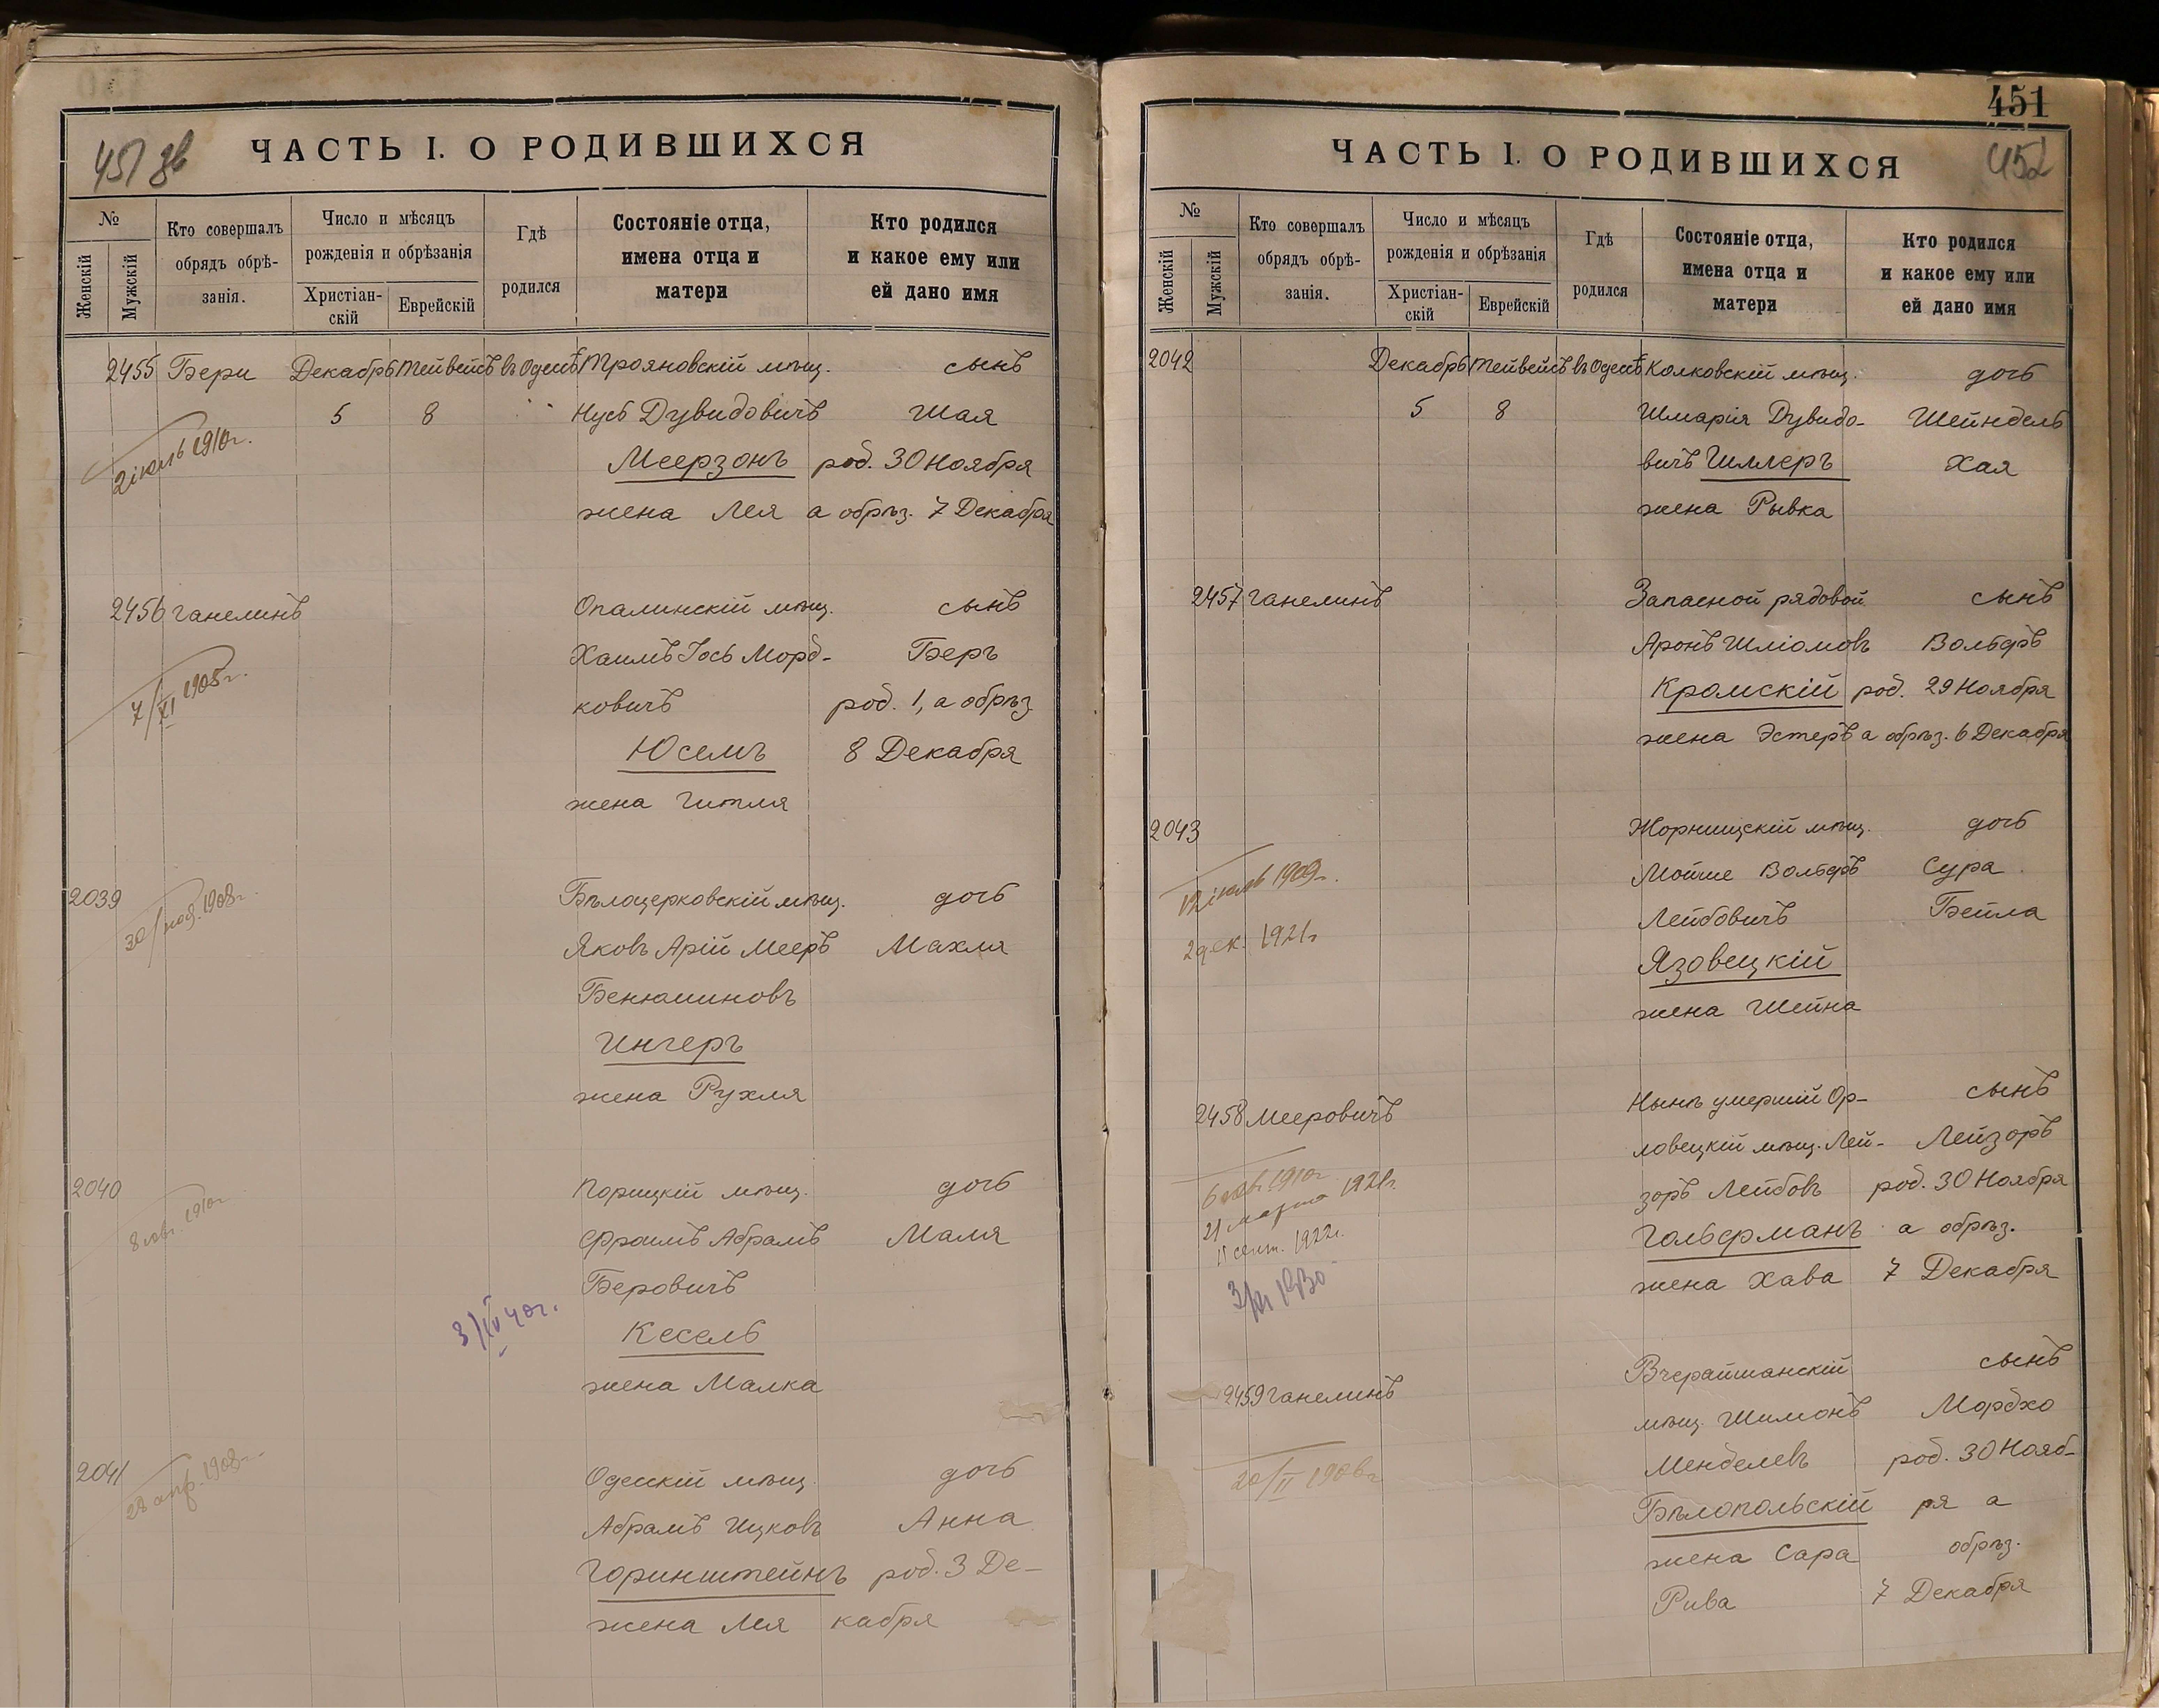 451 зв
ЧАСТЬ I. О РОДИВШИХСЯ
№
Женскій
Мужскій
Кто совершалъ
обрядъ обрѣ-
занія.
Число и мѣсяцъ
рожденія и обрѣзанія
Христіан-
скій
Еврейскій
Гдѣ
родился
Состояніе отца,
имена отца и
матери
Кто родился
и какое ему или
ей дано имя
2455 Бери Декабрь Тейвейсъ въ Одессѣ Трояновскій мѣщ. сынъ
5 8 Нусь Дувидовичъ Шая
2 іюль 1910г.
Меерзонъ род. 30 Ноября
жена Лея а обрѣз. 7 Декабря
2456 Ганелинъ Опалинскій мѣщ. сынъ
Хаимъ Іось Морд- Беръ
7/XI 1905г.
ковичъ род. 1, а обрѣз.
Юсемъ 8 Декабря
жена Гитля
2039 Бѣлоцерковскій мѣщ. дочь
30/ноя. 1908г.
Яковъ Арій Мееръ Махля
Бенюминовъ
Ингеръ
жена Рухля
2040 Порицкій мѣщ. дочь
Фроимъ Абрамъ Маля
Беровичъ
3/IV 40г.
Кесель
жена Малка
2041 Одесскій мѣщ. дочь
28 апр. 1908г.
Абрамъ Ицковъ Анна
Горинштейнъ род. 3 Де-
жена Лея кабря
451
452
ЧАСТЬ I. О РОДИВШИХСЯ
№
Женскій
Мужскій
Кто совершалъ
обрядъ обрѣ-
занія.
Число и мѣсяцъ
рожденія и обрѣзанія
Христіан-
скій
Еврейскій
Гдѣ
родился
Состояніе отца,
имена отца и
матери
Кто родился
и какое ему или
ей дано имя
2042 Декабрь Тейвейсъ въ Одессѣ Колковскій мѣщ. дочь
5 8 Шмарія Дувидо- Шейндель
вичъ Шмлеръ Хая
жена Рывка
2457 Ганелинъ Запасной рядовой сынъ
Аронъ Шліомовъ Вольфъ
Кромскій род. 29 Ноября
жена Эстеръ а обрѣз. 6 Декабря
2043 Жорнищскій мѣщ. дочь
Мойше Вольфъ Сура
1909г.
Лейбовичъ Бейла
2 дек. 1921г
Язовецкій
жена Шейна
2458 Мееровичъ Нынѣ умершій Ор- сынъ
ловецкій мѣщ. Лей- Лейзоръ
1910г.
зоръ Лейбовъ род. 30 Ноября
21 марта 1921г.
Гольфманъ а обрѣз.
сент. 1922г.
жена Хава 7 Декабря
2459 Ганелинъ Вчерайшанскій сынъ
мѣщ. Шимонъ Мордхо
Менделевъ род. 30 Нояб-
20/II 1906г
Бѣлопольскій ря а
жена Сара обрѣз.
Рива 7 Декабря